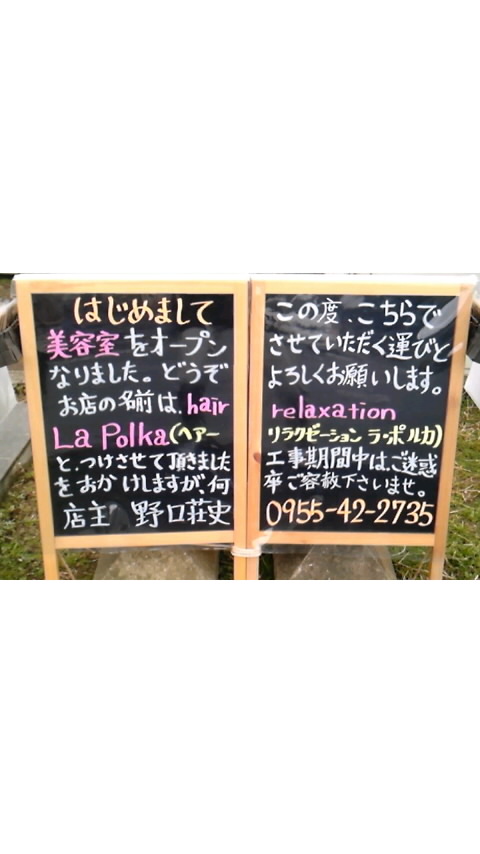 はじめまして この度、こちらで
美容室をオープン させていただく運びと
なりました。どうぞ よろしくお願いします。
お店の名前は、hair relaxation
La Polka(ヘアー リラクゼーション ラ・ポルカ)
と、つけさせて頂きました 工事期間中は、ご迷惑
をおかけしますが、何 卒ご容赦下さいませ。
店主 野口荘史 0955-42-2735